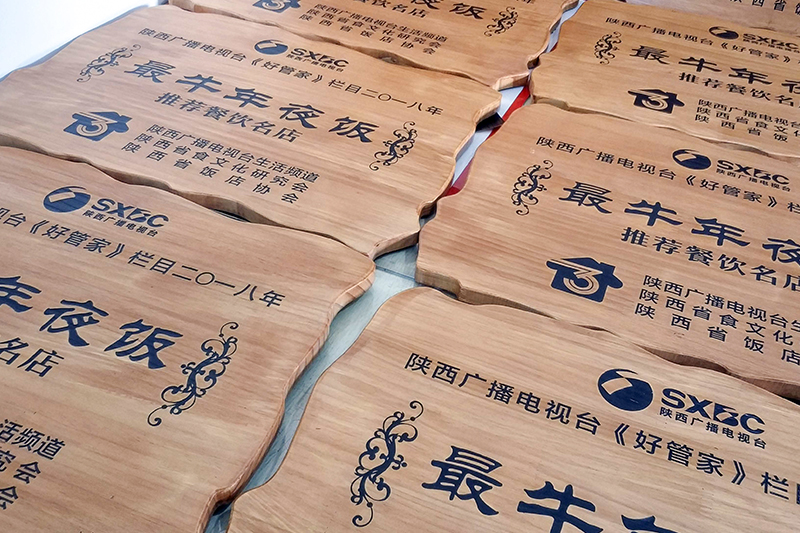 年夜饭
陕西广播电视台生活频道
陕西省食文化研究会
陕西省饭店协会
SXBC
陕西广播电视台
陕西广播电视台《好管家》栏目二〇一八年
最牛年夜饭
推荐餐饮名店
3
陕西广播电视台生活频道
陕西省食文化研究会
陕西省饭店协会
SXBC
陕西广播电视台《好管家》
最牛年夜
推荐餐饮名店
3
陕西广播电视台
陕西省食文化
陕西省饭
SXBC
陕西广播电视台
视台《好管家》栏目二〇一八年
年夜饭
名店
活频道
究会
会
SXBC
陕西广播电视台
陕西广播电视台《好管家》栏
最牛年夜
推荐餐饮名店
3
陕西广播电视台生
陕西省食文化
陕西省饭店
SXBC
陕西广播电视台
陕西广播电视台《好管家》栏目
最牛年